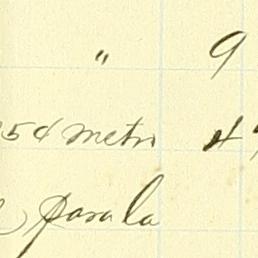 " 9
54 metro 4
para la